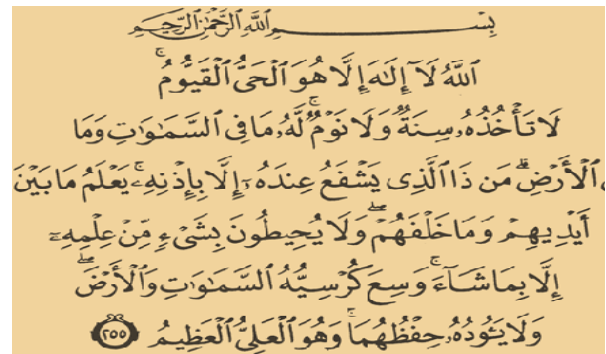 بِسْمِ ٱللَّهِ ٱلرَّحْمَٰنِ ٱلرَّحِيمِ
ٱللَّهُ لَآ إِلَٰهَ إِلَّا هُوَ ٱلْحَىُّ ٱلْقَيُّومُ ۚ
لَا تَأْخُذُهُۥ سِنَةٌ وَلَا نَوْمٌ ۚ لَّهُۥ مَا فِى ٱلسَّمَٰوَٰتِ وَمَا
ٱلْأَرْضِ ۗ مَن ذَا ٱلَّذِى يَشْفَعُ عِندَهُۥٓ إِلَّا بِإِذْنِهِۦ ۚ يَعْلَمُ مَا بَيْنَ
أَيْدِيهِمْ وَمَا خَلْفَهُمْ ۖ وَلَا يُحِيطُونَ بِشَىْءٍ مِّنْ عِلْمِهِۦٓ
إِلَّا بِمَا شَآءَ ۚ وَسِعَ كُرْسِيُّهُ ٱلسَّمَٰوَٰتِ وَٱلْأَرْضَ ۖ
وَلَا يَـُٔودُهُۥ حِفْظُهُمَا ۚ وَهُوَ ٱلْعَلِىُّ ٱلْعَظِيمُ ٢٥٥